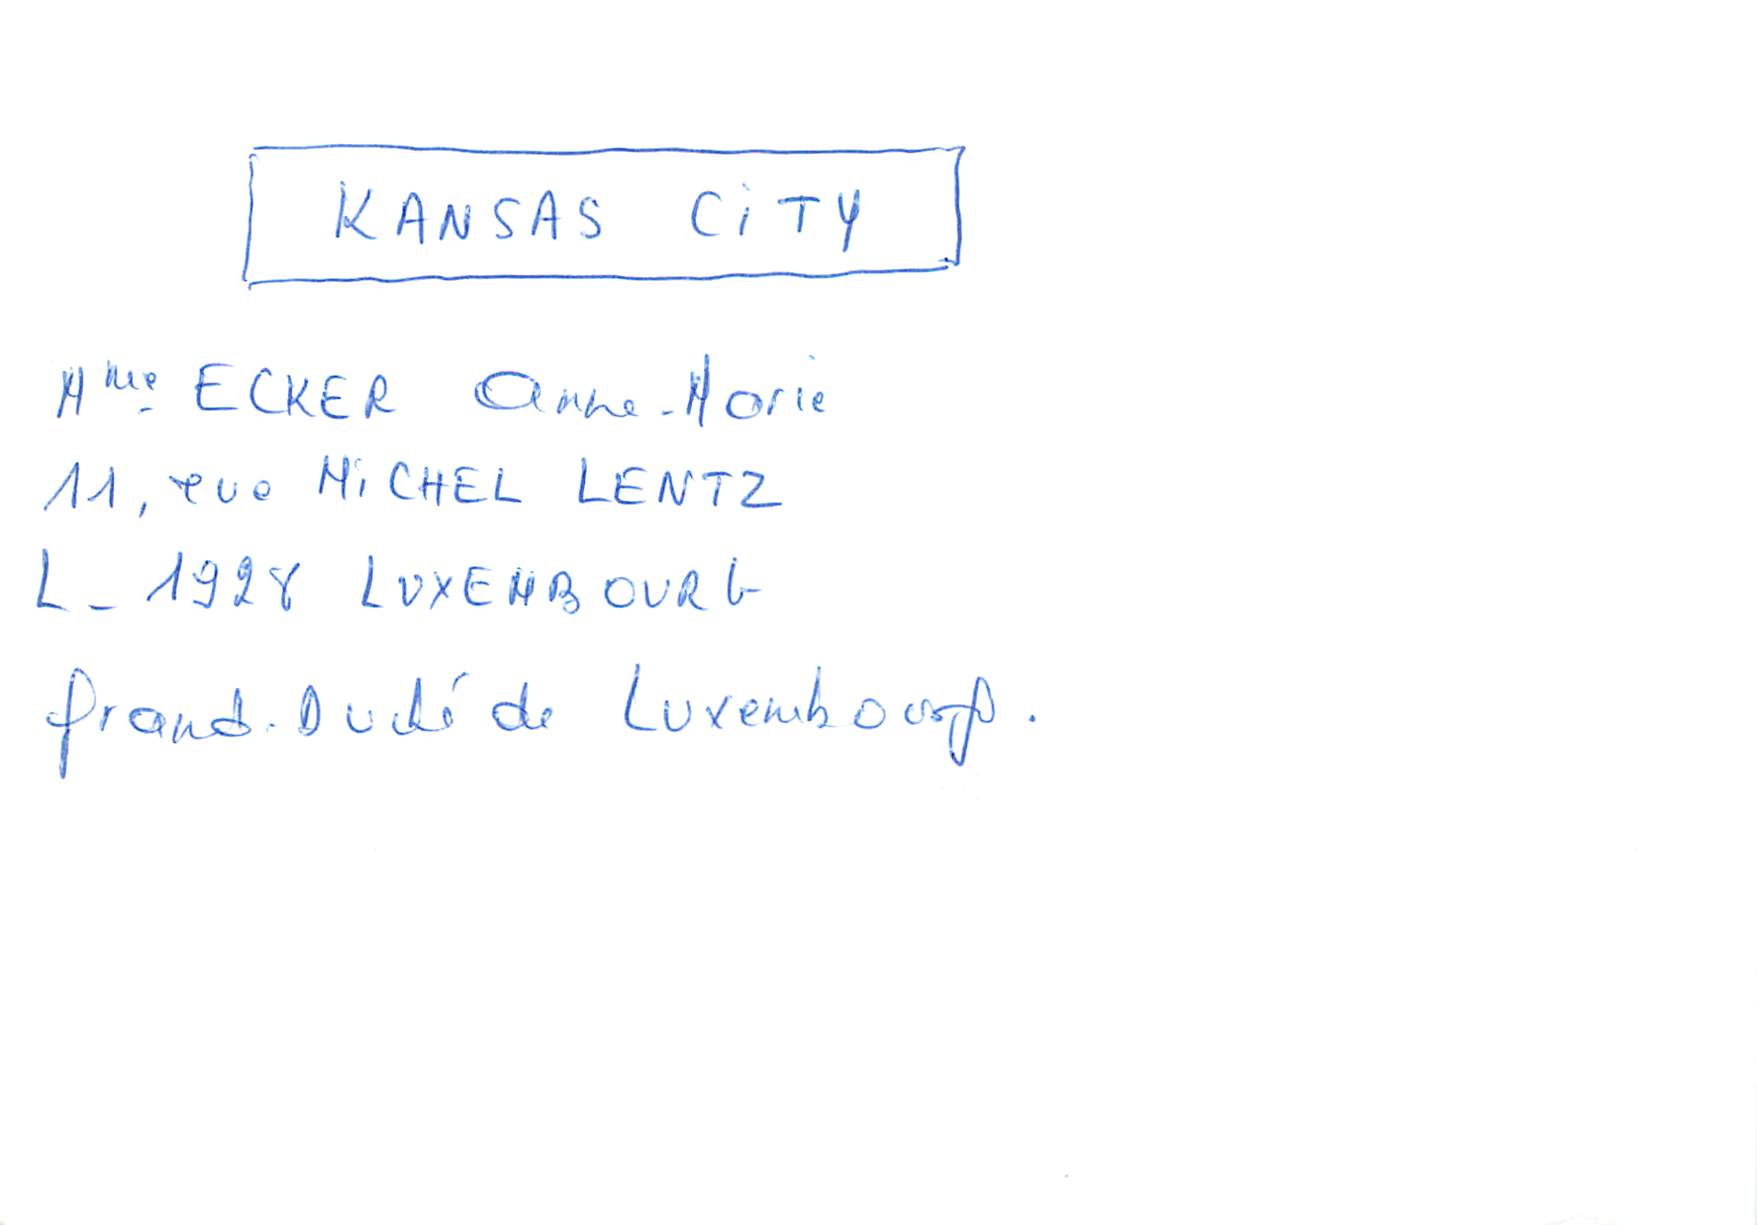 KANSAS CiTY
Mme ECKER Anne-Marie
11, rue MiCHEL LENTZ
L-1928 LUXEMBOURG
Grand-Duché de Luxembourg.